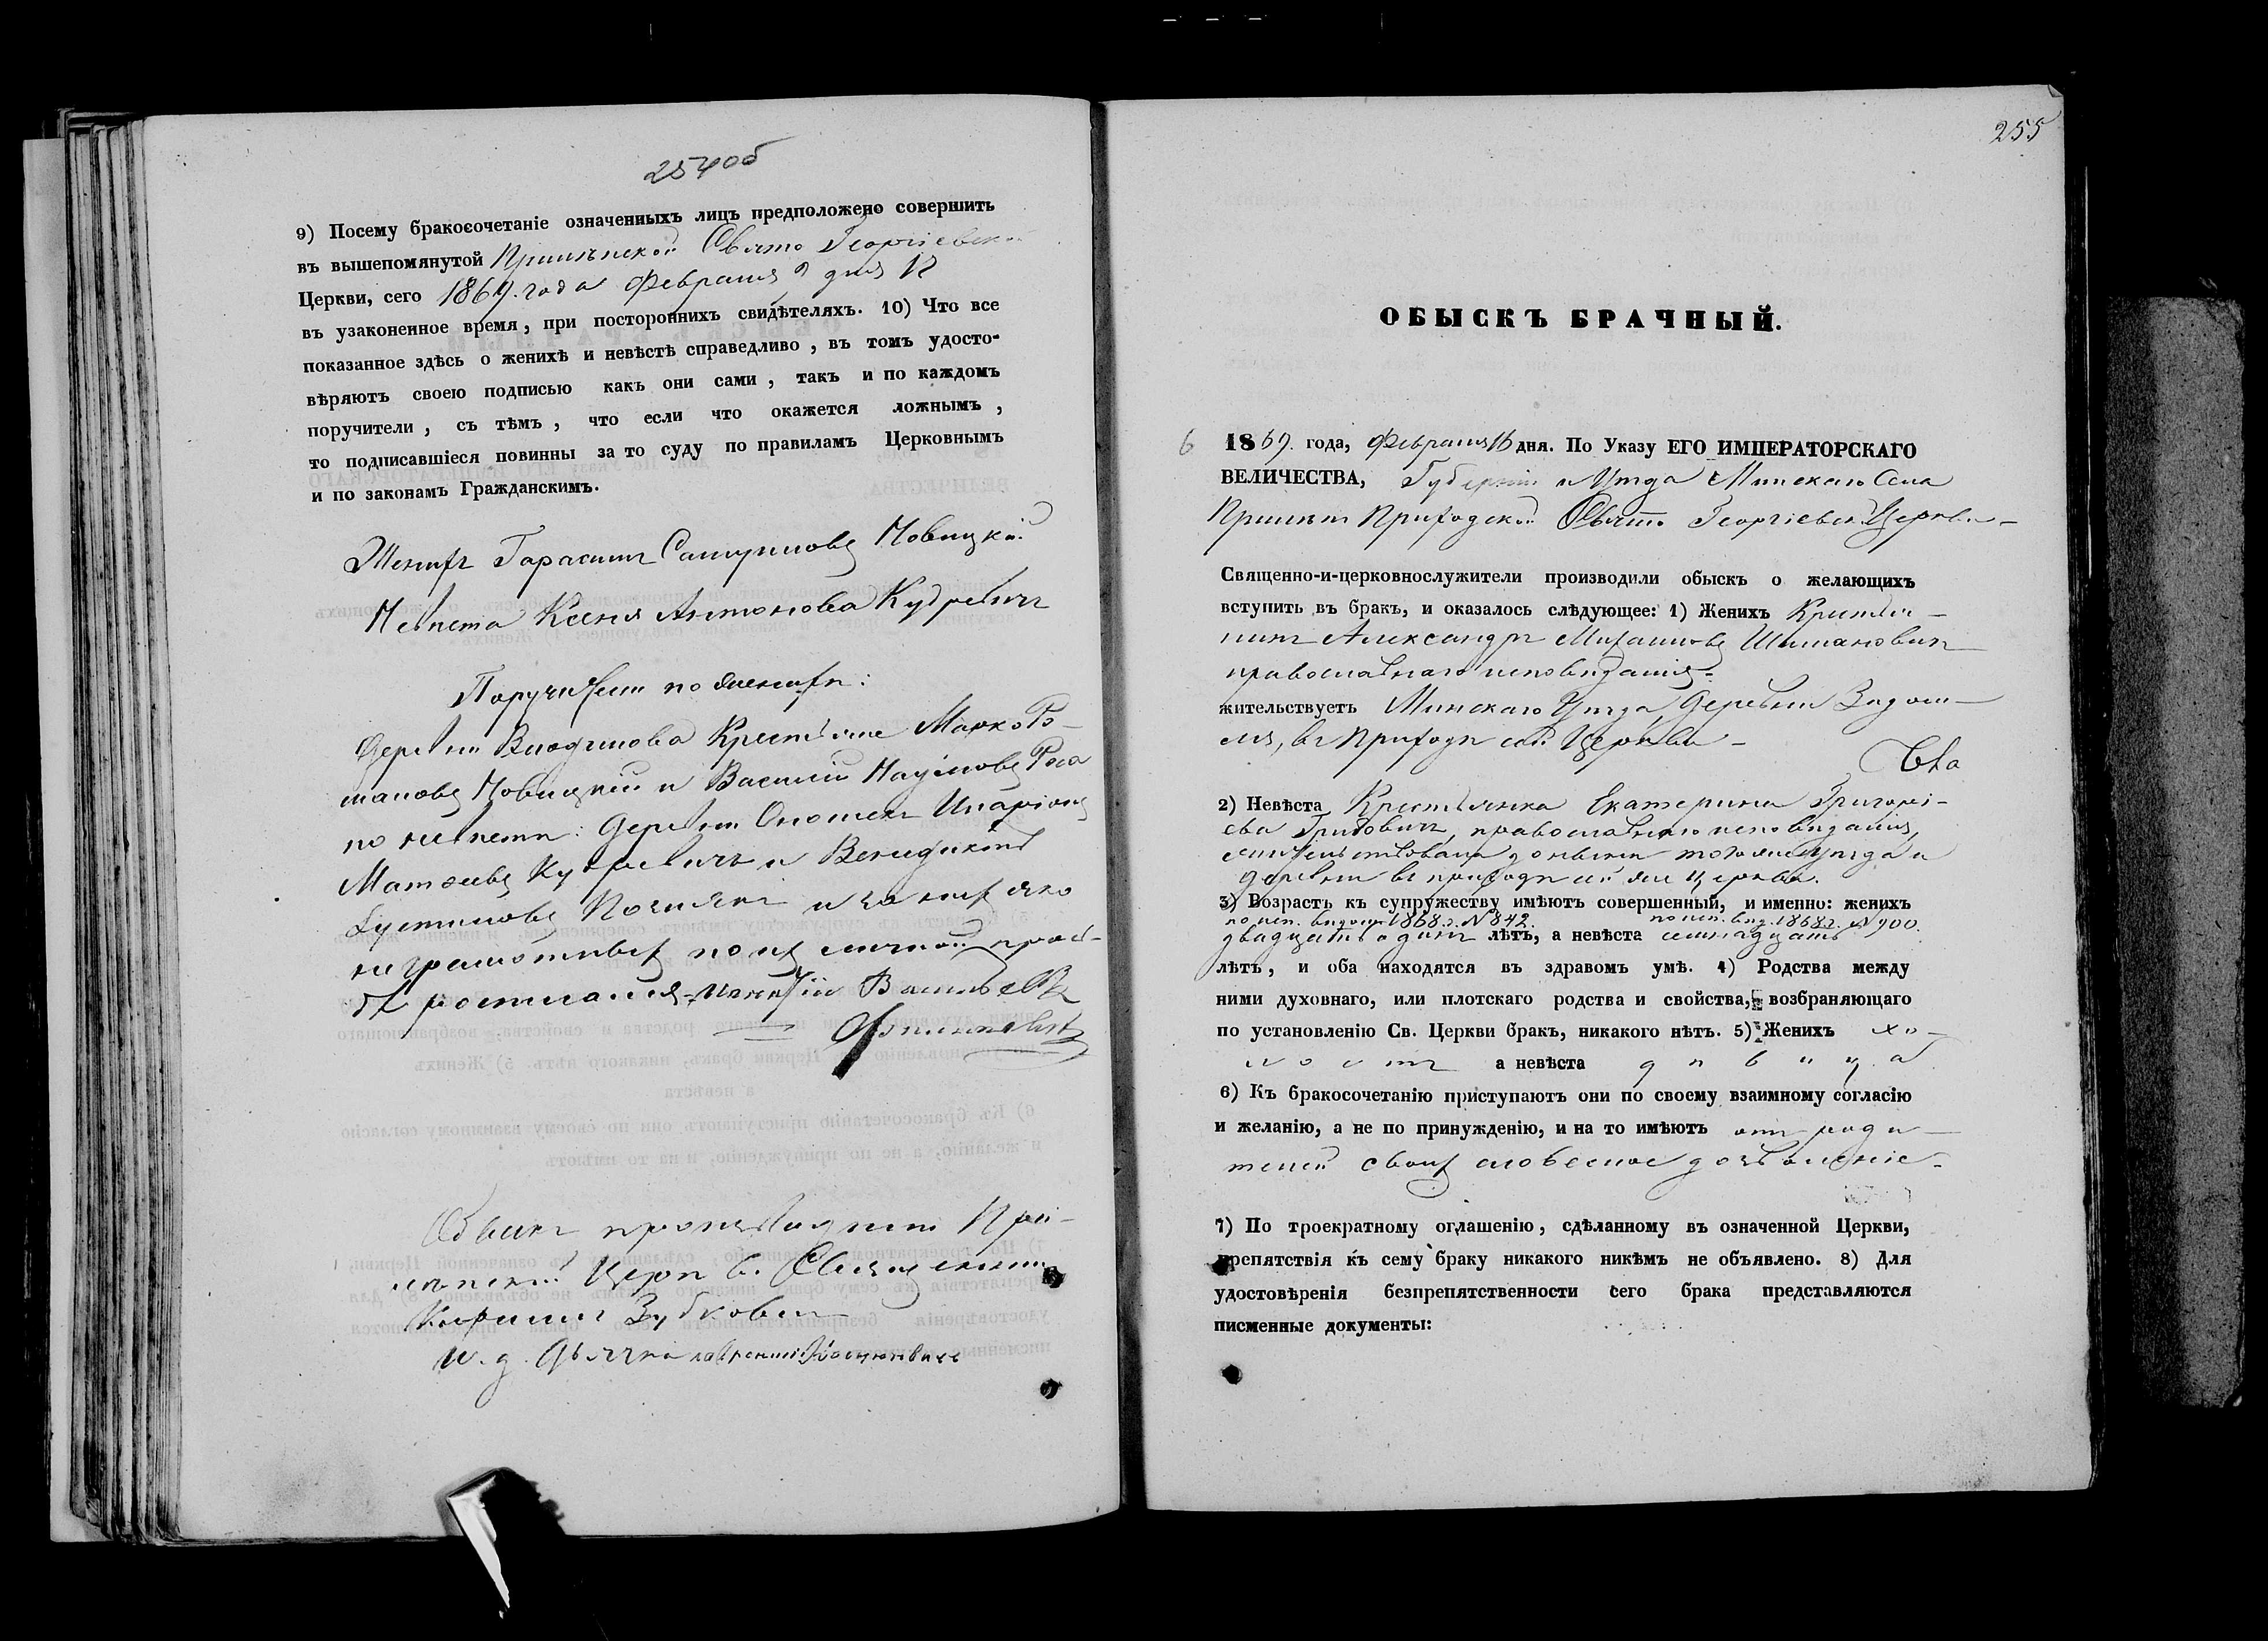 254об
9) Посему бракосочетаніе означенныхъ лицъ предположено совершить
въ вышепомянутой Прилѣпской Свято Георгіевской
Церкви, сего 1869. года Февраля 9 дня
въ узаконенное время, при постороннихъ свидѣтеляхъ. 10) Что все
показанное здѣсь о женихѣ и невѣстѣ справедливо, въ томъ удосто-
вѣряютъ своею подписью какъ они сами, такъ и по каждомъ
поручители, съ тѣмъ, что если что окажется ложнымъ,
то подписавшіеся повинны за то суду по правиламъ Церковнымъ
и по законамъ Гражданскимъ.
Женихъ Гарасимъ Самуиловъ Новицкій
Невѣста Ксенія Антонова Кудревичъ
Поручители по женихѣ:
Деревни Крестьяне Марко Ро-
мановъ Новицкій и Василій Наумовъ
по невѣстѣ: Деревни Иларіонъ
Матѳеевъ Кудревичъ и Венедиктъ
Іустиновъ и за нихъ яко
неграмотныхъ по ихъ личной прось-
бѣ росписался Васильевъ
Обыскъ производили При-
лѣпской Церкви Священникъ
Кириллъ Зубковичъ
И. д. Дьячка Лаврентій
255
ОБЫСКЪ БРАЧНЫЙ.
6 1869. года, Февраля 16 дня. По Указу ЕГО ИМПЕРАТОРСКАГО
ВЕЛИЧЕСТВА, Губерніи и Уѣзда Минскаго Села
Прилѣпъ Приходской Свято Георгіевск. Церкви
Священно-и-церковнослужители производили обыскъ о желающихъ
вступить въ бракъ, и оказалось слѣдующее: 1) Женихъ Крестья-
нинъ Александръ Михаиловъ Шимановичъ
православнаго исповѣданія
жительствуетъ Минскаго Уѣзда, Деревни
въ Приходѣ сей Церкви
2) Невѣста Крестьянка Екатерина Григорі-
ева православнаго исповѣданія,
жительствовала донынѣ того же Уѣзда и
деревни въ приходѣ сей же церкви.
3) Возрастъ къ супружеству имѣютъ совершенный, и именно: женихъ
по исп. вѣдом. 1868 г. № 842. по исп. вѣд. 1868 г. № 900.
двадцать одинъ лѣтъ, а невѣста семнадцать
лѣтъ, и оба находятся въ здравомъ умѣ. 4) Родства между
ними духовнаго, или плотскаго родства и свойства, возбраняющаго
по установленію Св. Церкви бракъ, никакого нѣтъ. 5) Женихъ хо-
лостъ а невѣста дѣвица
6) Къ бракосочетанію приступаютъ они по своему взаимному согласію
и желанію, а не по принужденію, и на то имѣютъ отъ роди-
телей своихъ словесное дозволеніе.
7) По троекратному оглашенію, сдѣланному въ означенной Церкви,
препятствія къ сему браку никакого никѣмъ не объявлено. 8) Для
удостовѣренія безпрепятственности сего брака представляются
писменные документы: